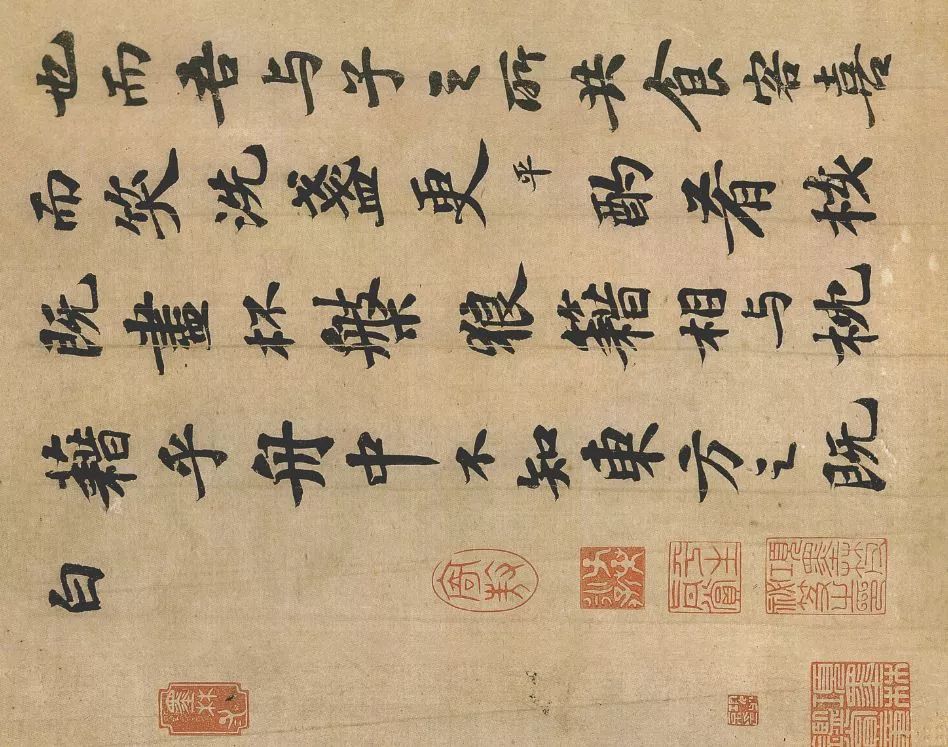 也而吾与子之所共食客喜
而笑洗盞更平酌肴核
既盡杯槃狼籍相与枕
藉乎舟中不知東方之既
白